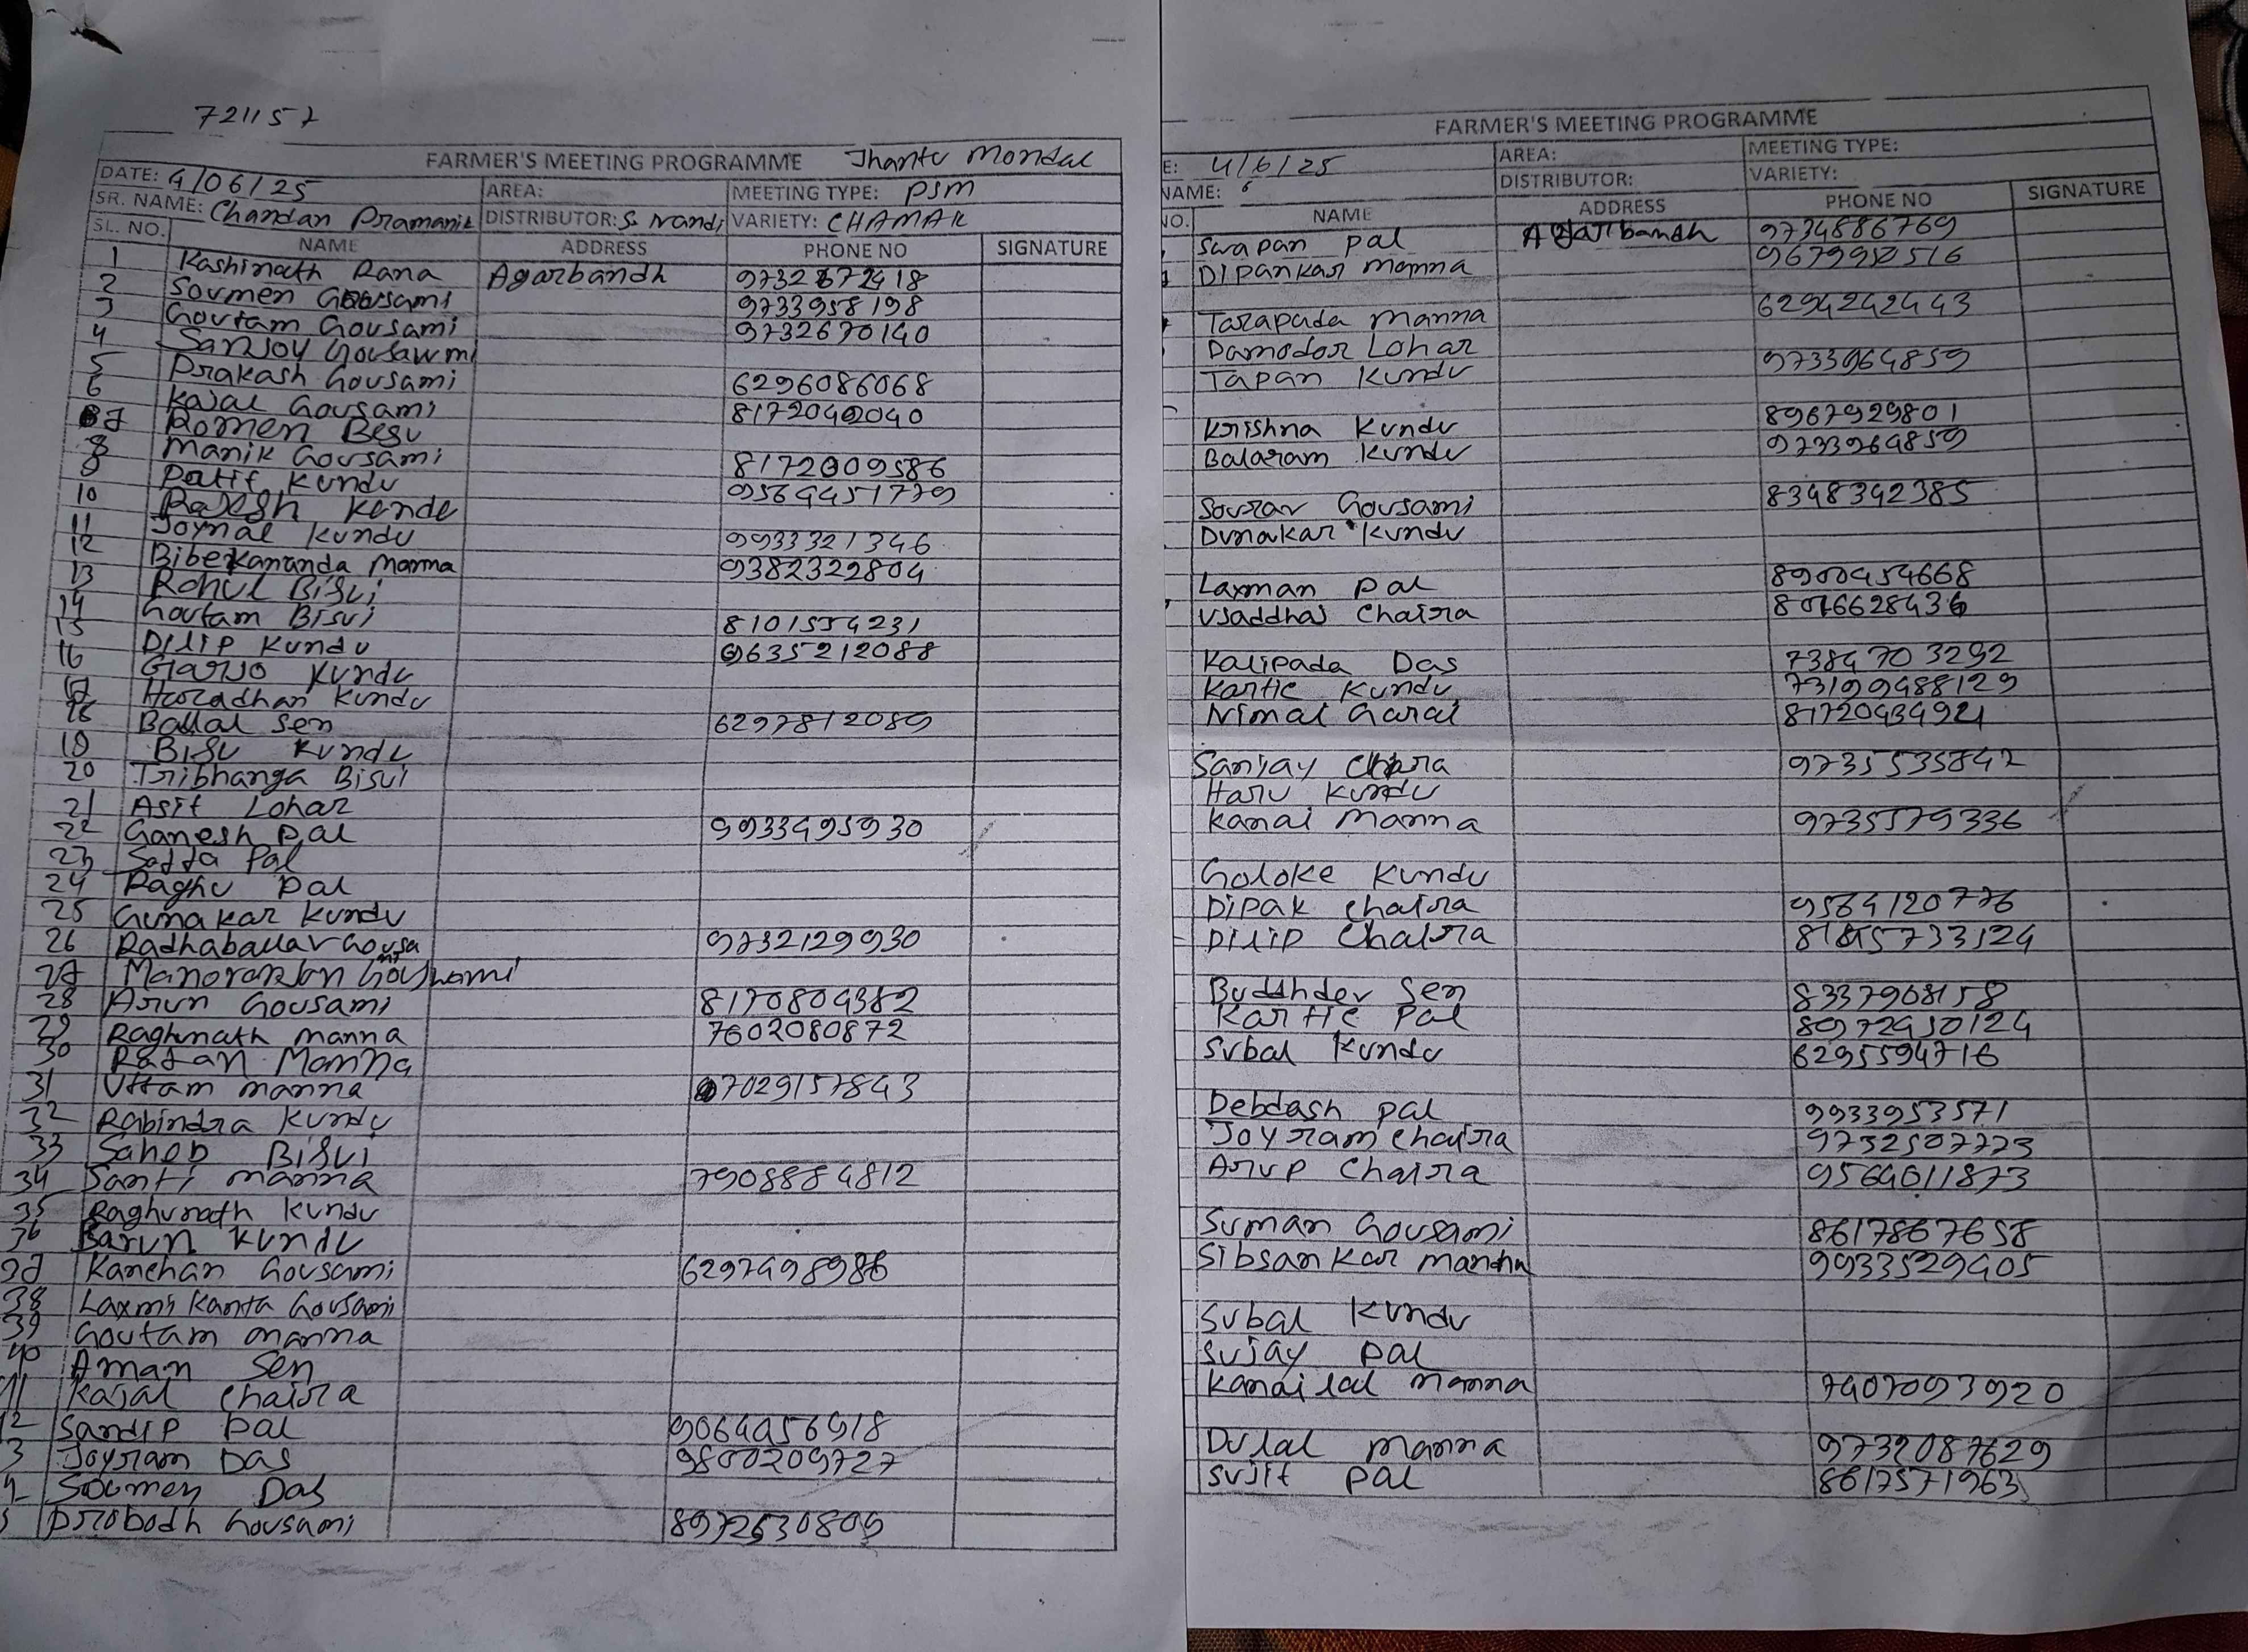 721157
FARMER'S MEETING PROGRAMME Jhantu Mondal
DATE: 4/06/25 AREA: MEETING TYPE: PSM
SR. NAME: Chandan Pramanik DISTRIBUTOR: S. Nandi VARIETY: CHAMAK
SL. NO. NAME ADDRESS PHONE NO SIGNATURE
1 Kashinath Rana Agarbandh
2 Soumen Gousami 9733958198
3 Goutam Gousami 9732670140
4 Sanjoy Gousawmi
5 Prakash Gousami 6296086068
6 Kajal Gousami 8172040040
7 Romen Besu
8 Manik Gousami 8172009586
9 Kundu 9564451779
10 Rajesh Kundu
11 Joymal Kundu 9933321346
12 Bibekananda Manna 9382322804
13 Rahul Bisui
14 Goutam Bisui 8101554231
15 Dilip Kundu 9635212088
16 Kundu
17 Haradhan Kundu
18 Ballal Sen 6297812089
19 Bisu Kundu
20 Tribhanga Bisui
21 Asit Lohar
22 Ganesh Pal 9933495930
23 Pal
24 Raghu Pal
25 Gunakar Kundu
26 Radhaballav Gousami 9732129930
27 Manoranjan Gouswami
28 Arun Gousami 8170804382
29 Raghunath Manna 7602080872
30 Ratan Manna
31 Uttam Manna 7029157843
32 Rabindra Kundu
33 Saheb Bisui
34 Santi Manna 7908884812
35 Raghunath Kundu
36 Barun Kundu
37 Kanchan Gousami 6297498986
38 Laxmi Kanta Gousami
39 Goutam Manna
40 Aman Sen
Kajal Chaira
Sandip Pal 9064056918
3 Joyram Das 9800209727
Soumen Das
Probodh Gousami 8972630809
FARMER'S MEETING PROGRAMME
E: 4/6/25 AREA: MEETING TYPE:
NAME: DISTRIBUTOR: VARIETY:
NO. NAME ADDRESS PHONE NO SIGNATURE
Swapan Pal Agarbandh 9734886769
Dipankar Manna
Tarapada Manna 6294242443
Damodor Lohar
Tapan Kundu 9733964859
Krishna Kundu 8967929801
Balaram Kundu 9733964859
Sourav Gousami 8348342385
Dunakar Kundu
Laxman Pal 8900454668
Usaddhas Chaira 8016628436
Kalipada Das 7384703292
Kartic Kundu 73199488129
Nimal Garai 8172043492
Sanjay Chaira 9735535842
Haru Kundu
Kanai Manna 9735579336
Goloke Kundu
Dipak Chaira 9564120776
Dilip Chaira
Buddhdev Sen 8337968158
Kartic Pal 8972450124
Subal Kundu 6295594716
Debdash Pal 9933953571
Joyram Chaira 9732507773
Arup Chaira 9564011873
Suman Gousami 8617867658
Sibsankar Manna 9933529405
Subal Kundu
Sujay Pal
Kanailal Manna 7407093920
Dulal Manna 9732087629
Sujit Pal 8617571963